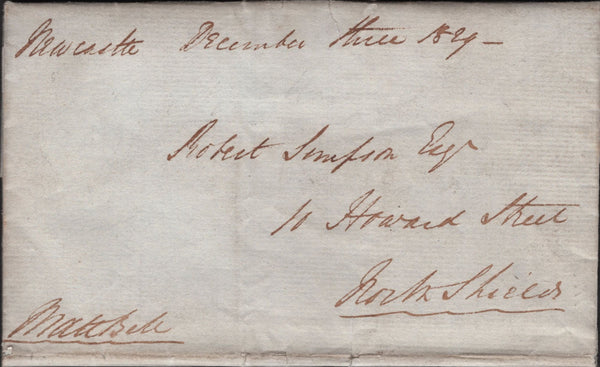 Newcastle December three 1829 -
Robert Simpson Esqr
10 Howard Street
North Shields
Matt Bell